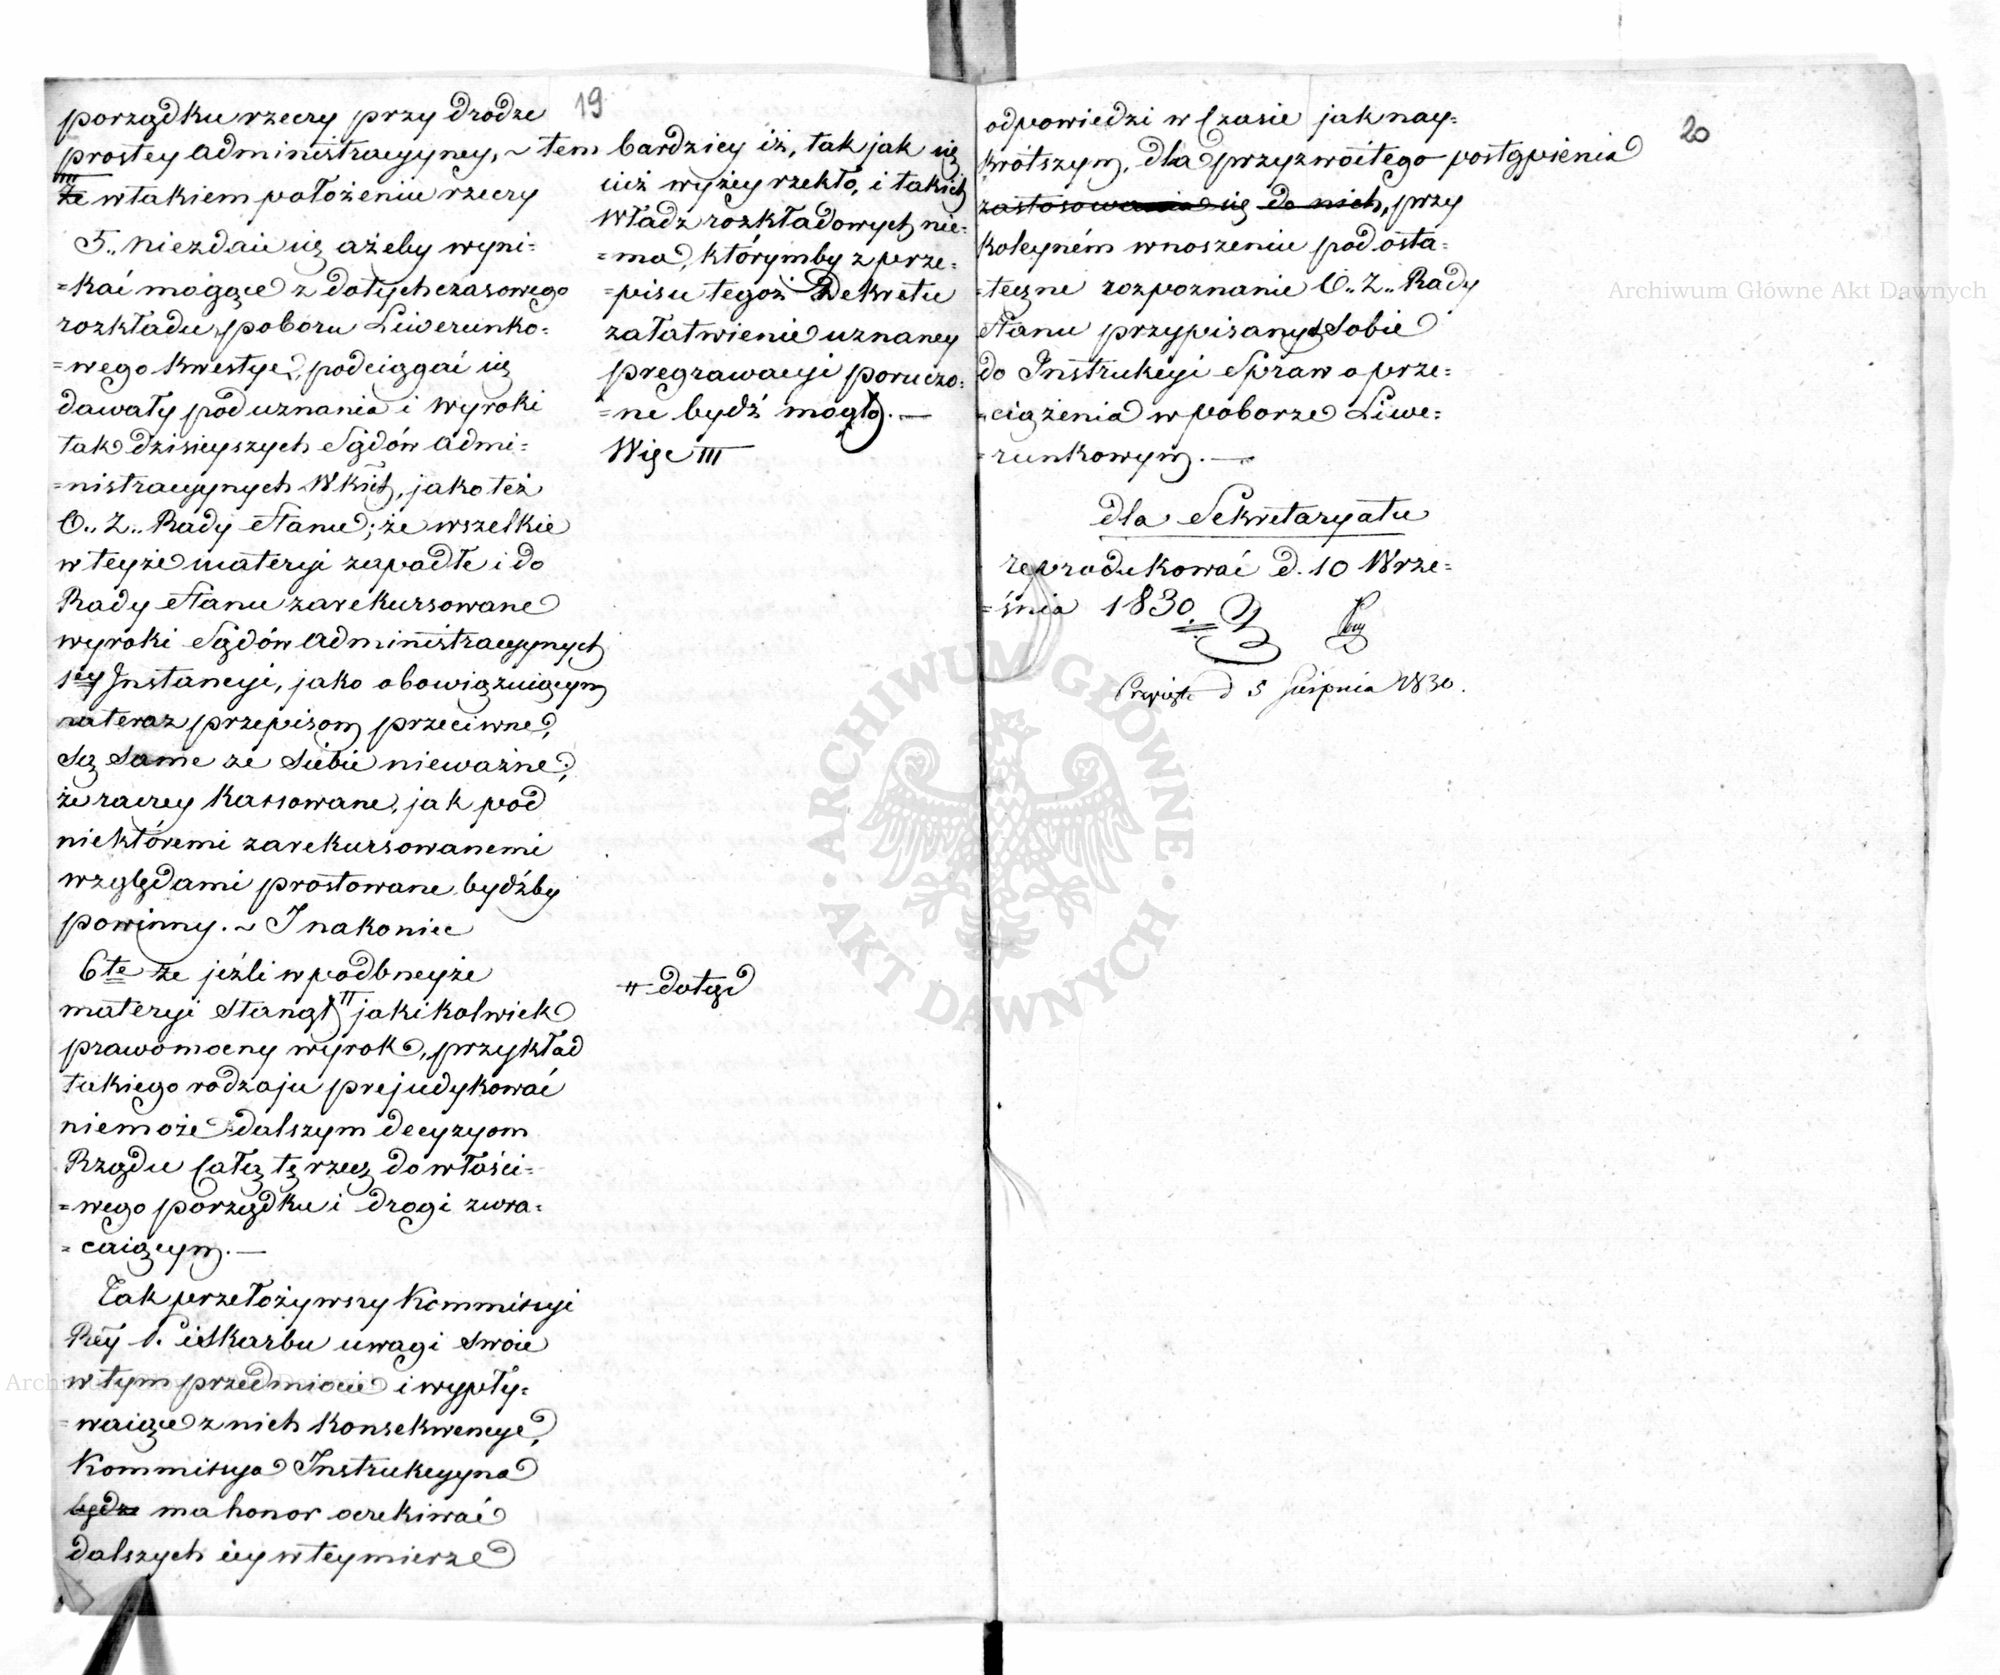 19
porządku rzeczy przy drodze
prostey administracyyney, ~ tem bardziey iż, tak jak się
już wyżey rzekło, i takich
Władz rozkładowych nie=
=ma, którymby z prze=
=pisu tegoż Dekretu
załatwienie uznaney
pregrawacyi poruczo=
=ne bydź mogło. —
Więc III
III
że w takiem położeniu rzeczy
5.. niezdaie się ażeby wyni=
=kać mogące z dotychczasowego
rozkładu, poboru Liwerunko=
=wego kwestye, podciągać się
dawały pod uznania i wyroki
tak dzisieyszych Sądów admi=
=nistracyynych Wkich, jako też
O.. Z.. Rady Stanu; że wszelkie
w teyże materyi zapadłe i do
Rady Stanu zarekursowane
wyroki Sądów administracyynych
1ey Instancyi, jako obowiązuiącym
na teraz przepisom przeciwne,
są same ze siebie nieważne;
że raczey kassowane, jak pod
niektóremi zarekursowanemi
względami prostowane bydźby
powinny. ~ I nakoniec
6te że jeźli w podbneyże
materyi stanął " jakikolwiek
" dotąd
prawomocny wyrok, przykład
takiego rodzaju prejudykować
niemoże dalszym decyzyom
Rządu całą tę rzecz do właści=
=wego porządku i drogi zwra=
=caiącym. —
Tak przełożywszy Kommissyi
Rey P. i Skarbu uwagi swoie
w tym przedmiocie i wypły=
=waiące z nich konsekwencye,
Kommissya Instrukcyyna
będzie ma honor oczekiwać
dalszych iey w tey mierze
20
odpowiedzi w czasie jak nay=
krótszym, dla przyzwoitego postąpienia
zastosowania się do nich, przy
koleyném wnoszeniu pod osta=
=teczne rozpoznanie O.. Z.. Rady
Stanu przypisanych Sobie
do Instrukcyi Spraw o prze=
=ciążenia w poborze Liwe=
=runkowym. —
dla Sekretaryatu
reprodukować d. 10 Wrze=
=śnia 1830.
Przyięto d 5 Sierpnia 1830.
Archiwum Główne Akt Dawnych
Archiwum Główne Akt Dawnych
ARCHIWUM GŁÓWNE · AKT DAWNYCH ·